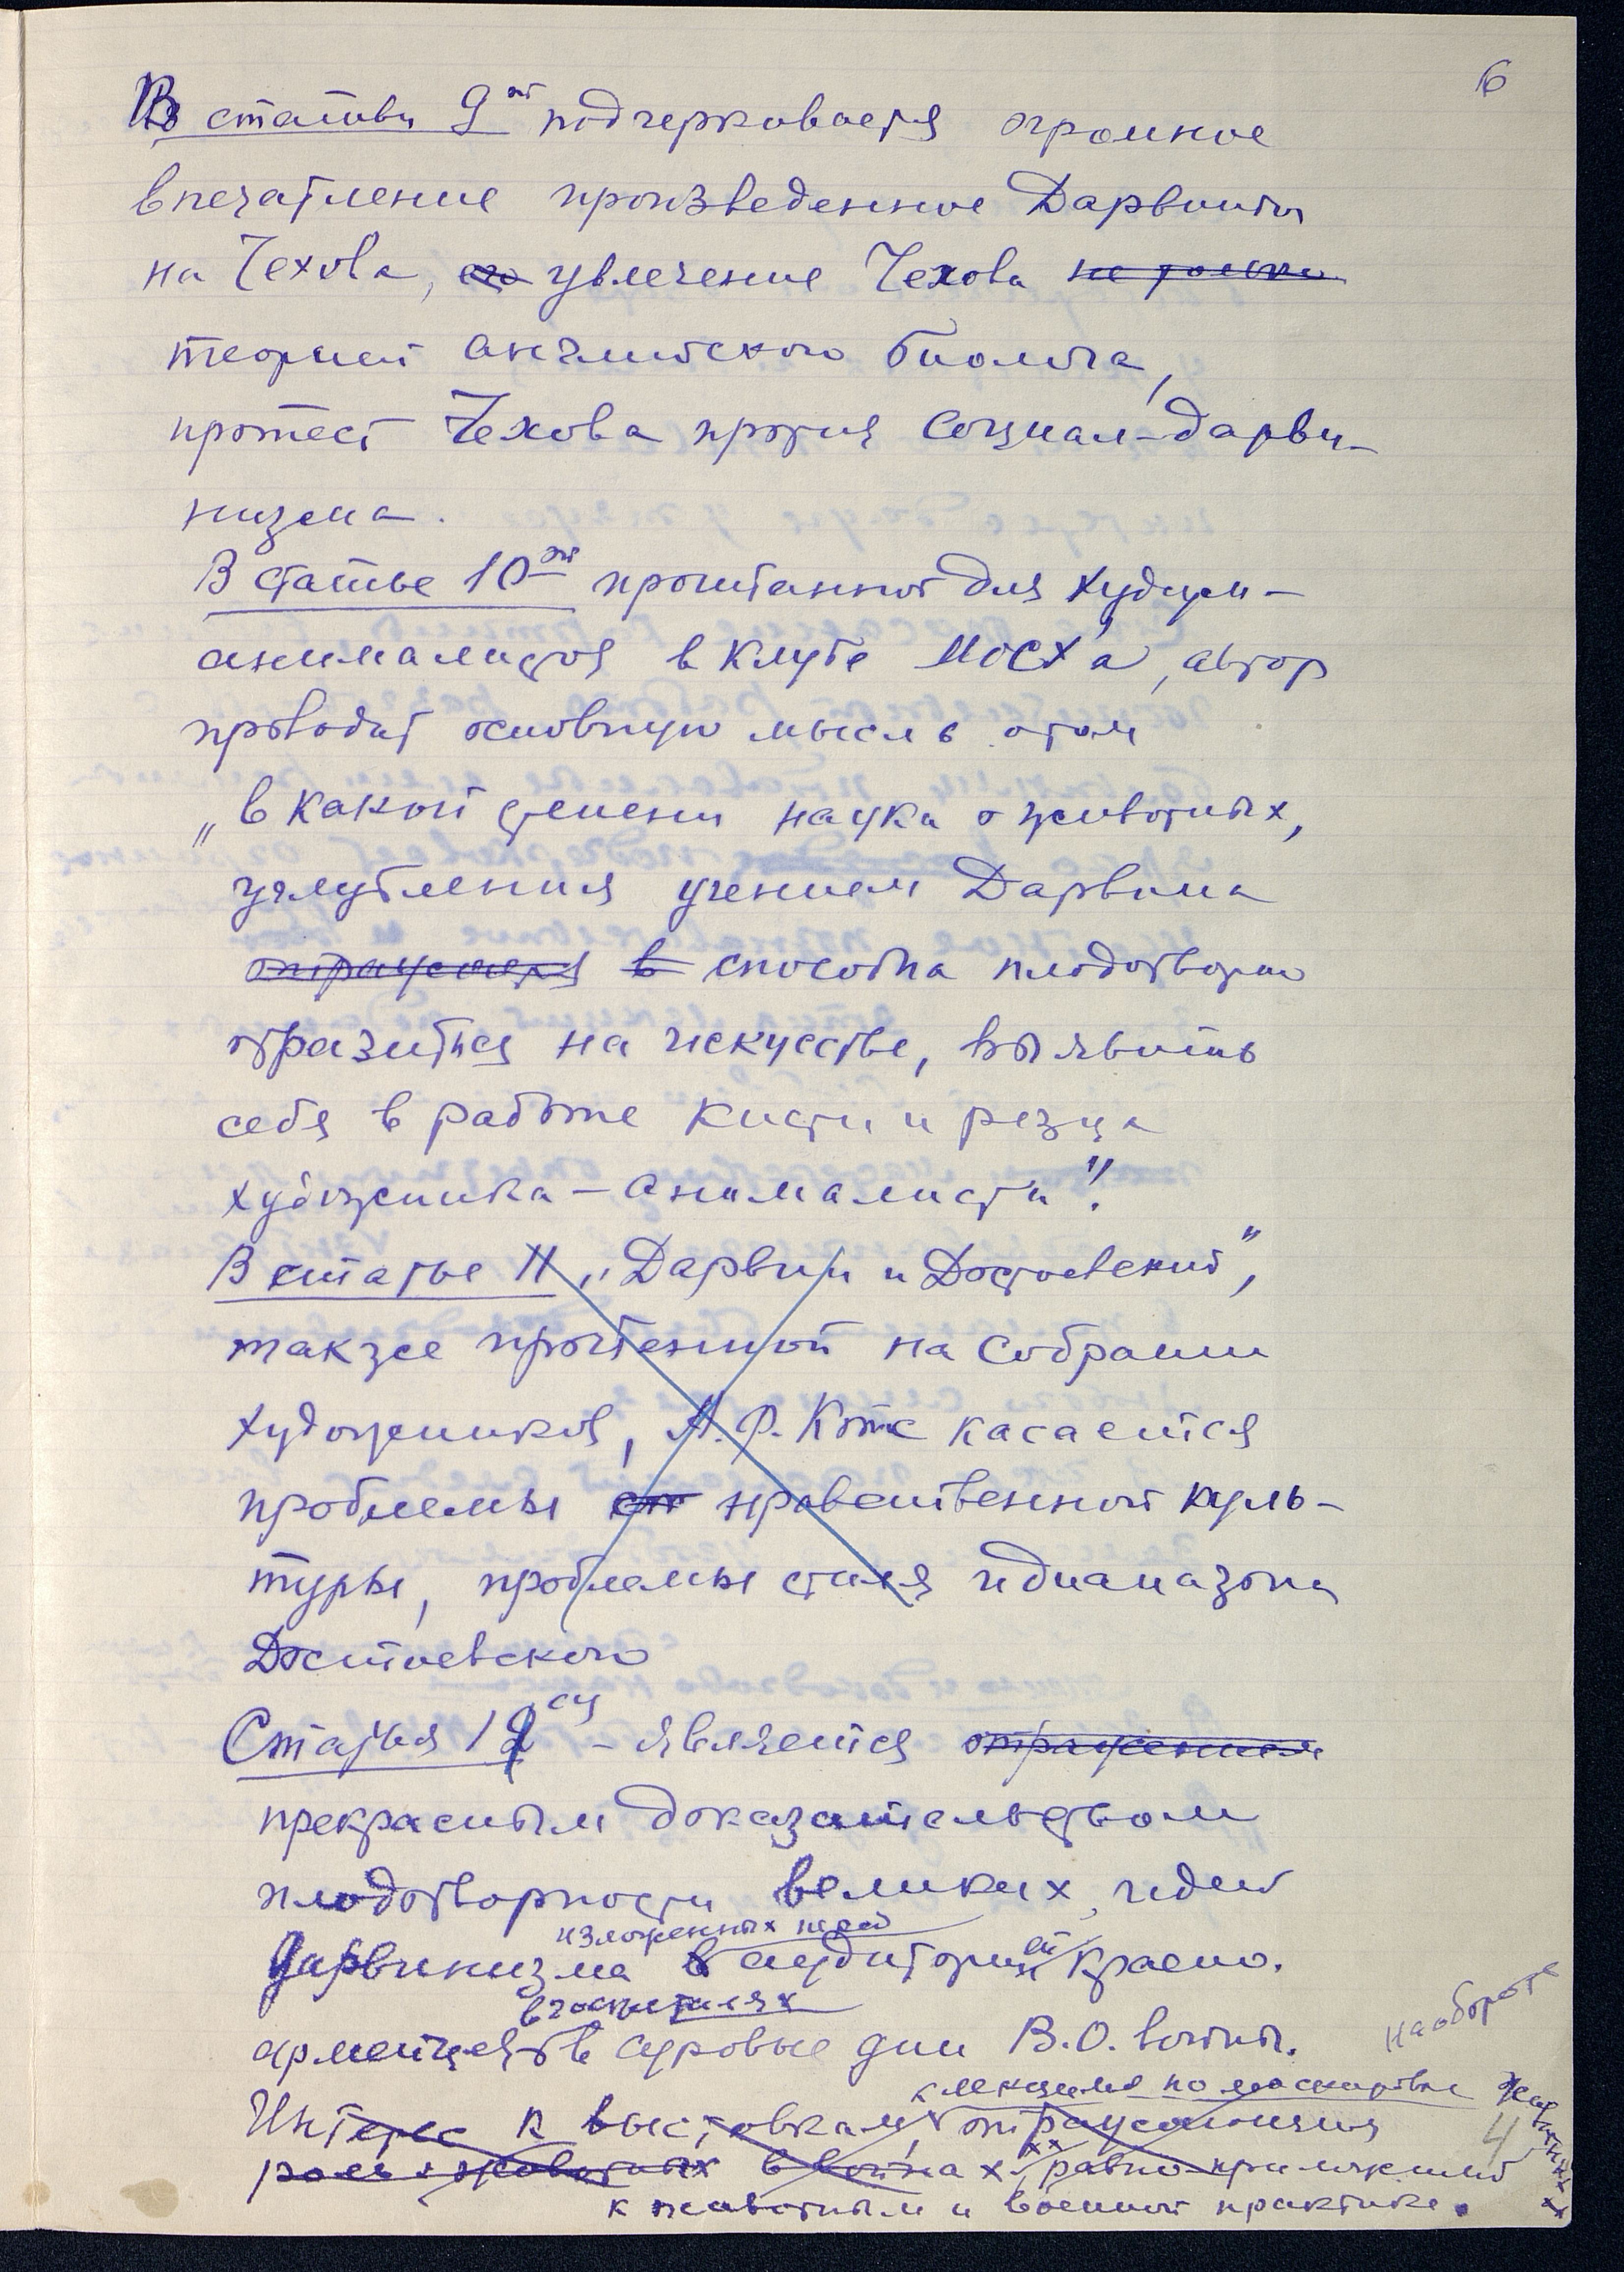 6
В статьи 9ой подчеркивается огромное
впечатление произведенное Дарвиным
на Чехова, его увлечение Чехова не только
теорией английского биолога,
протест Чехова против социал-дарви-
низма.
В статье 10ой прочитанной для худож-
анималистов в клубе МОСХ'а, автор
проводит основную мысль о том
„в какой степени наука о животных,
углубления учением Дарвина
отражается в способна плодотворно
отразиться на искусстве, выявить
себя в работе кисти и резца
художника-анималиста".
В статье 11 „Дарвин и Достоевский",
также прочтенной на собрании
художников, А.Ф. Котс касается
проблемы нравственной куль-
туры, проблемы стиля и диапазона
Достоевского
Статья 12ая - является отражением
прекрасным доказательством
плодотворности великих идей
изложенных перед
дарвинизма в аудиторией красно.
в госпиталях
армейцев в суровые дни В.О. войны.
наоборот
к лекциям по маскировке
Интерес к выставкам, отражающим
роль животных в войнах равно приложений
к животным и военной практике.
4